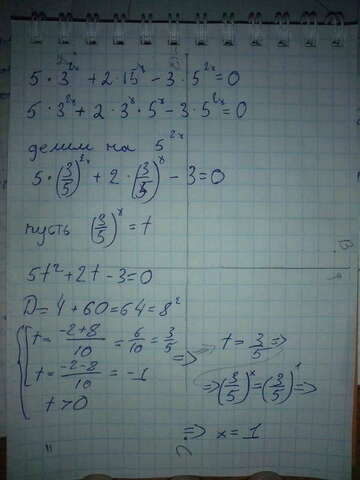 5 · 3^{2x} + 2 · 15^x − 3 · 5^{2x} = 0
5 · 3^{2x} + 2 · 3^x · 5^x − 3 · 5^{2x} = 0
делим на 5^{2x}
5 · (3/5)^{2x} + 2 · (3/5)^x − 3 = 0
пусть (3/5)^x = t
5t² + 2t − 3 = 0
D = 4 + 60 = 64 = 8²
t = (−2+8)/10 = 6/10 = 3/5
t = (−2−8)/10 = −1
t > 0
=> t = 3/5 =>
=> (3/5)^x = (3/5)^1 =>
=> x = 1